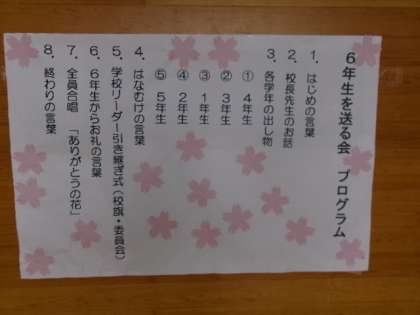 ６年生を送る会　プログラム
１．はじめの言葉
２．校長先生のお話
３．各学年の出し物
① ４年生
② ３年生
③ １年生
④ ２年生
⑤ ５年生
４．はなむけの言葉
５．学校リーダー引き継ぎ式（校旗・委員会）
６．６年生からお礼の言葉
７．全員合唱　「ありがとうの花」
８．終わりの言葉